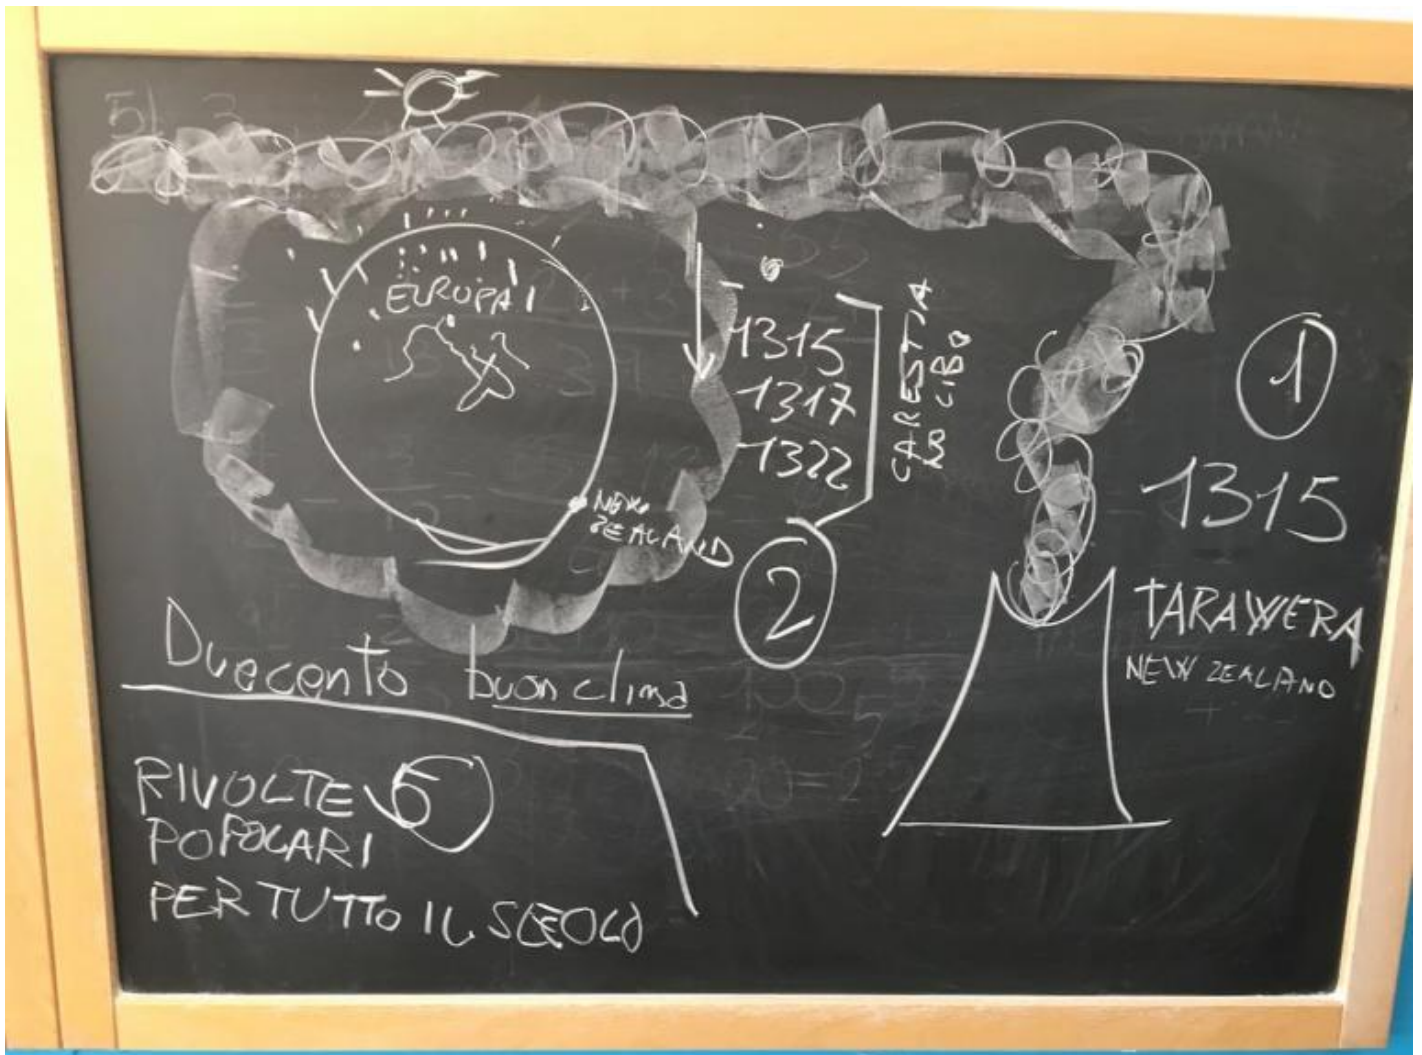 EUROPA
1315
1317
1322
CARESTIA
DI CIBO
2
NEW
ZEALAND
1
1315
TARAWERA
NEW ZEALAND
Duecento buon clima
RIVOLTE 5
POPOLARI
PER TUTTO IL SECOLO